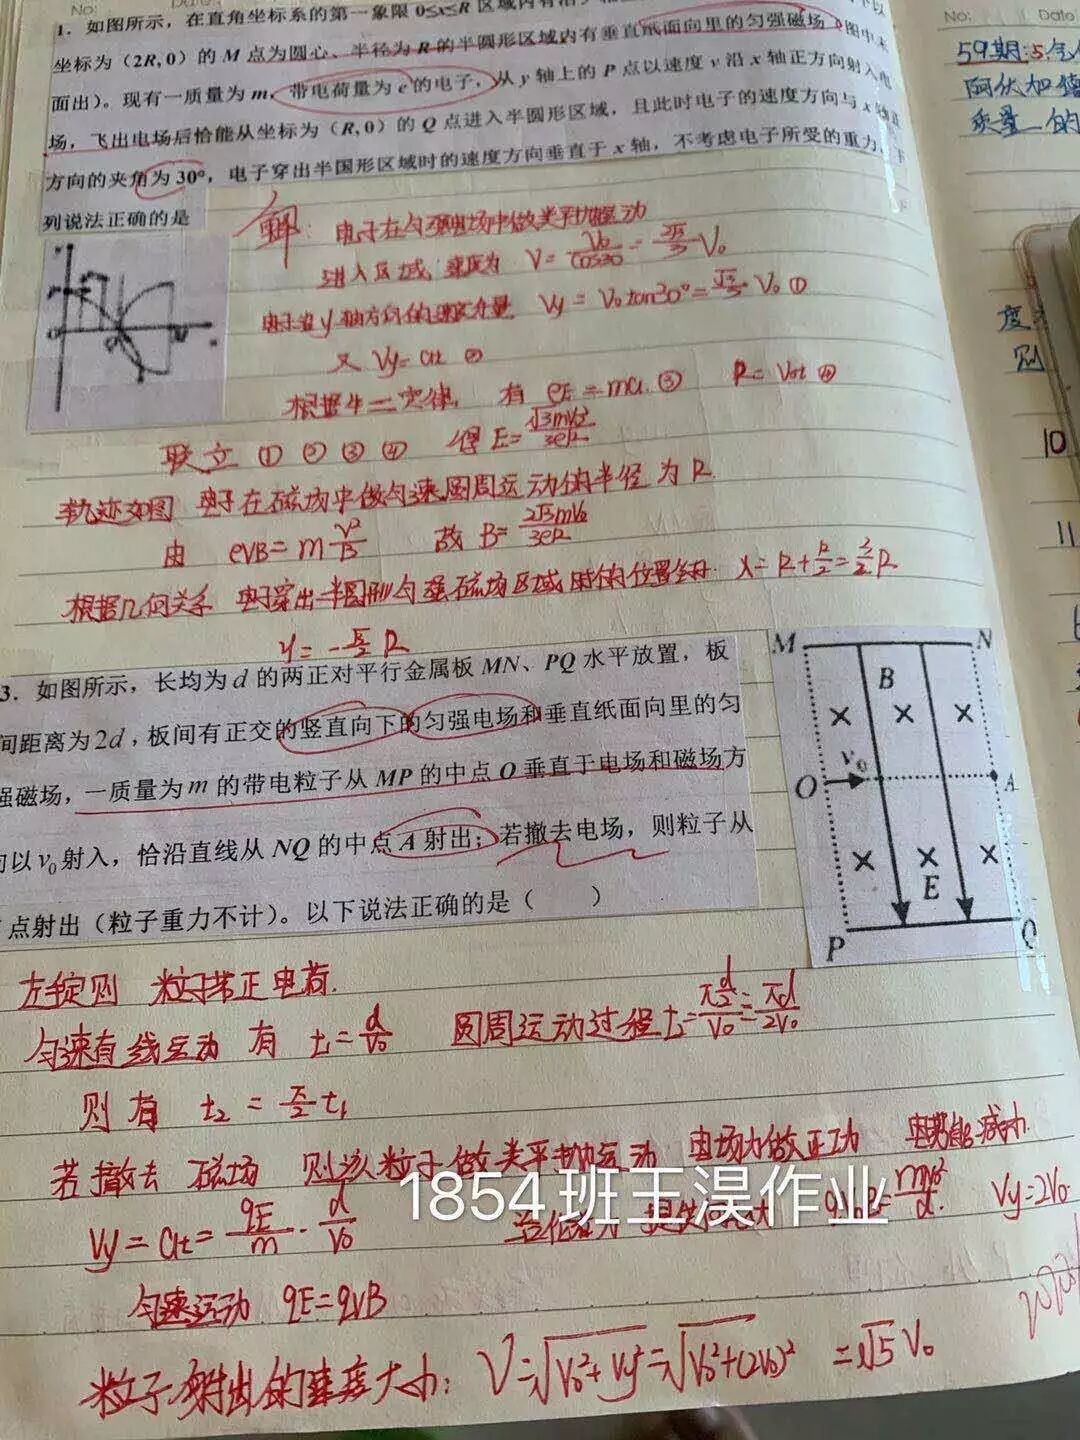 No:
Date
1. 如图所示，在直角坐标系的第一象限 0≤x≤R 区域内有沿
坐标为（2R, 0）的 M 点为圆心、半径为 R 的半圆形区域内有垂直纸面向里的匀强磁场（图中未
面出）。现有一质量为 m，带电荷量为 e 的电子，从 y 轴上的 P 点以速度 v 沿 x 轴正方向射入电
场，飞出电场后恰能从坐标为（R, 0）的 Q 点进入半圆形区域，且此时电子的速度方向与 x 轴正
方向的夹角为 30°，电子穿出半圆形区域时的速度方向垂直于 x 轴，不考虑电子所受的重力，下
列说法正确的是
解：电子在匀强电场中做类平抛运动
进入区域 速度为 V=V₀/cos30=2√3/3 V₀
电子沿y轴方向的速度分量 Vy=V₀tan30°=√3/3 V₀ ①
又 Vy=at ②
根据牛二定律，有 eE=ma ③ R=V₀t ④
联立 ① ② ③ ④ 得E=√3mV₀²/3eR
轨迹如图 电子在磁场中做匀速圆周运动的半径为R.
由 eVB=m V²/B 故 B=2√3mV₀/3eR
根据几何关系 电子穿出半圆形匀强磁场区域时的位置坐标 x=R+R/2=3/2 R
y=-√3/2 R
3. 如图所示，长均为 d 的两正对平行金属板 MN、PQ 水平放置，板
间距离为2d，板间有正交的竖直向下的匀强电场和垂直纸面向里的匀
强磁场，一质量为 m 的带电粒子从 MP 的中点 O 垂直于电场和磁场方
向以 v₀ 射入，恰沿直线从 NQ 的中点 A 射出；若撤去电场，则粒子从
点射出（粒子重力不计）。以下说法正确的是（ ）
M
N
B
× × ×
O
v₀
A
× × ×
E
P
Q
左手定则 粒子带正电荷.
匀速直线运动 有 t₁=d/V₀ 圆周运动过程t₂=π d/2/V₀=πd/2V₀
则有 t₂=π/2 t₁
若撤去 磁场 则该粒子做类平抛运动 电场力做正功 电势能减小
Vy=at=qE/m·d/V₀
mV₀²/d Vy=2V₀
匀速运动 qE=qVB
粒子射出的速度大小：V=√V₀²+Vy²=√V₀²+(2V₀)²=√5V₀
1854班王淏作业
No:
Date
59期:5.气
阿伏加德
质量
的
度
则
10
11